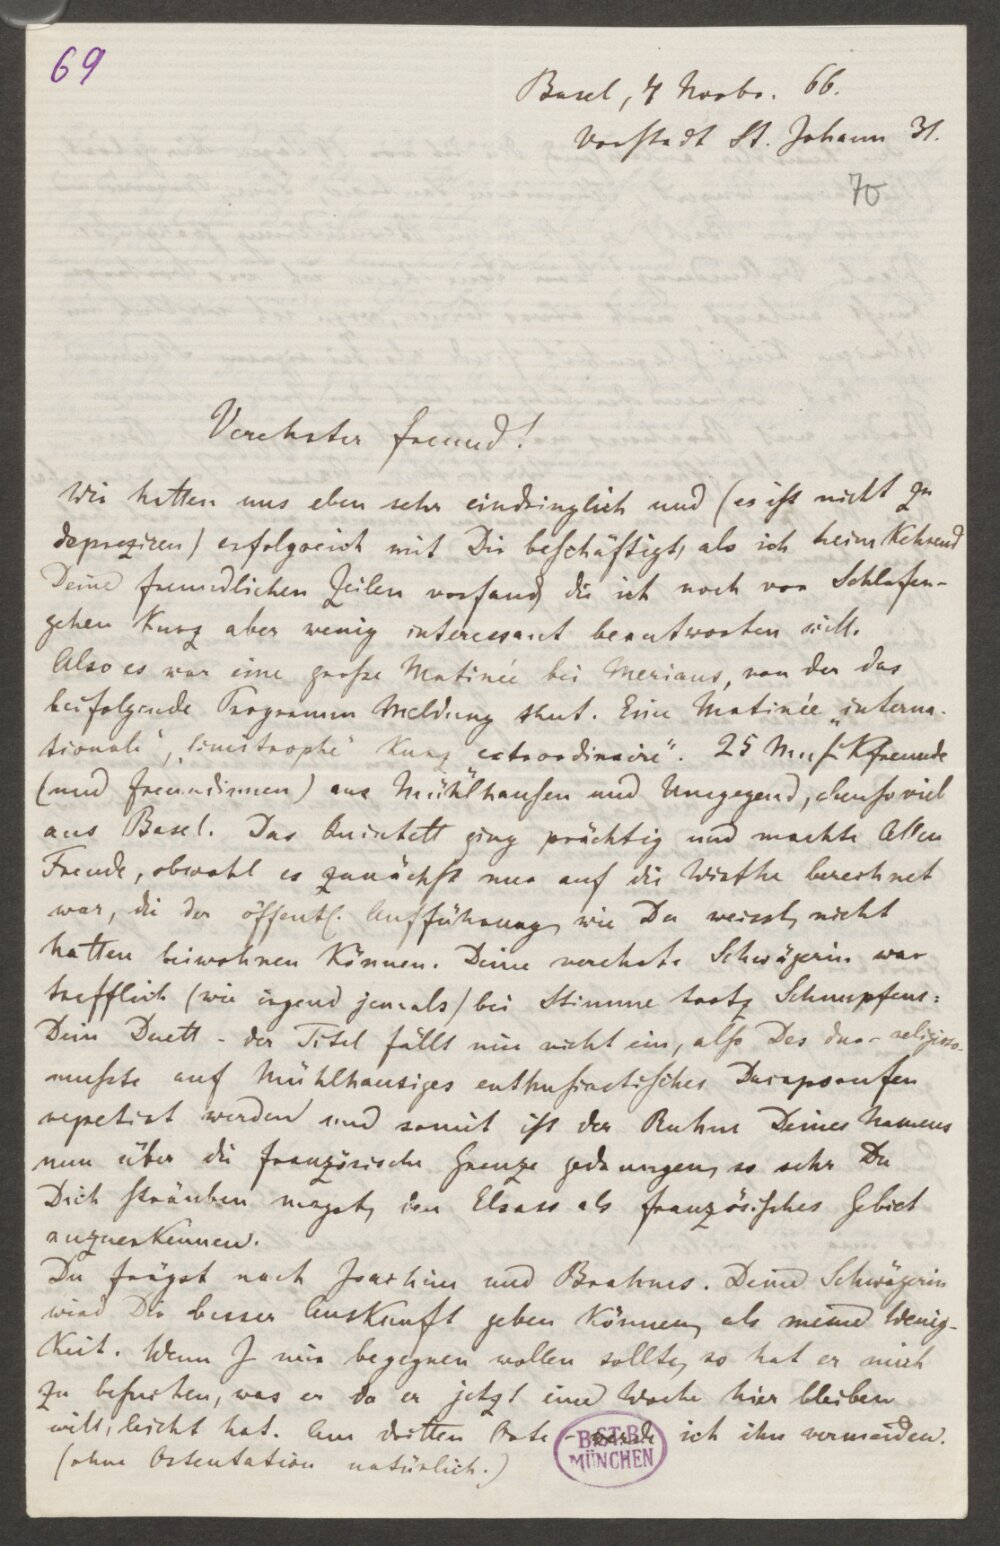 69
Basel, 4 Novbr. 66.
Vorstadt St. Johann 31.
70
Verehrter Freund!
Wir hatten uns eben sehr eindringlich und (es ist nicht zu
depreziren) erfolgreich mit Dir beschäftigt, als ich heimkehrend
Deine freundlichen Zeilen vorfand, die ich noch vor Schlafen-
gehen kurz aber wenig interessant beantworten will.
Also es war eine große Matinée bei Merians, von der das
beifolgende Programm Meldung thut. Eine Matinée „interna-
tionale", kurz „extraordinaire". 25 Musikfreunde
(und Freundinnen) aus Mühlhausen und Umgegend, ebensoviel
aus Basel. Das Quintett ging prächtig und machte Allen
Freude, obwohl es zunächst nur auf die Wirthe berechnet
war, die der öffentl. Aufführung, wie Du weisst, nicht
hatten beiwohnen können. Deine verehrte Schwägerin war
trefflich (wie irgend jemals) bei Stimme trotz Schnupfens:
Dein Duett – der Titel fällt mir nicht ein, also Das duo-religioso-
musste auf Mühlhausiges enthusiastisches Dacaporufen
repetirt werden und somit ist der Ruhm Deines Namens
nun über die französische Grenze gedrungen, so sehr Du
Dich sträuben magst, den Elsass als französisches Gebiet
anzuerkennen.
Du frägst nach Joachim und Brahms. Deine Schwägerin
wird Dir besser Auskunft geben können, als meine Wenig-
keit. Wenn J mir begegnen wollen sollte, so hat er mich
zu besuchen, was er da er jetzt eine Woche hier bleiben
will, leicht hat. Am dritten Orte – werde ich ihn vermeiden.
(ohne Ostentation natürlich.)
B.ST.B.
MÜNCHEN